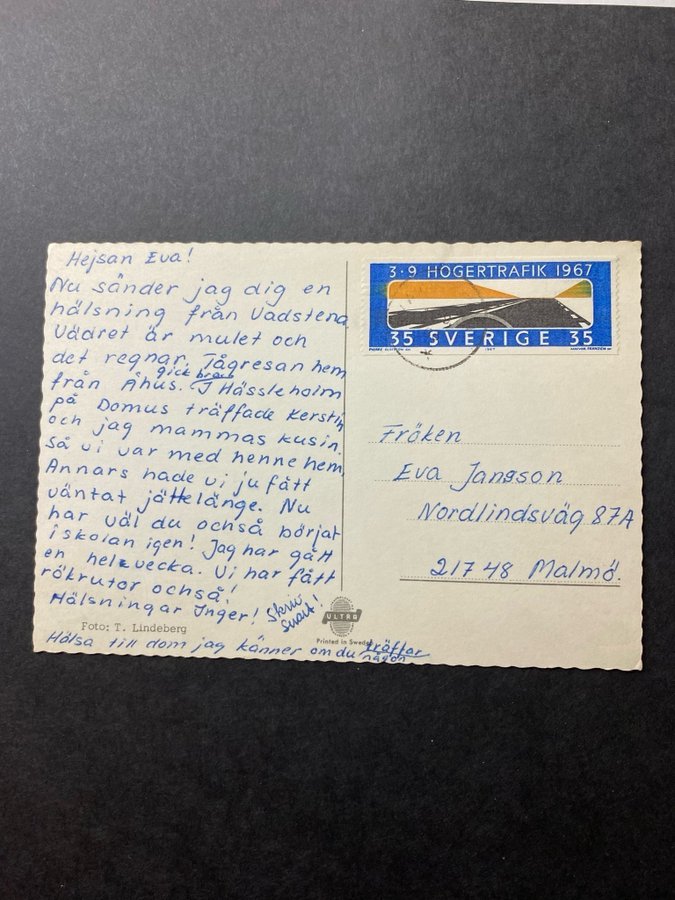 Hejsan Eva!
Nu sänder jag dig en
hälsning från Vadstena
Vädret är mulet och
det regnar. Tågresan hem
från Åhus. gick bra I Hässleholm
på Domus träffade Kerstin
och jag mammas kusin.
Så vi var med henne hem,
Annars hade vi ju fått
väntat jättelänge. Nu
har väl du också börjat
i skolan igen! Jag har gått
en hel vecka. Vi har fått
rökrutor också!
Hälsningar Inger! Skriv
snart!
Foto: T. Lindeberg
Hälsa till dom jag känner om du träffar
någon
ULTRA
Printed in Sweden
3·9 HÖGERTRAFIK 1967
35 SVERIGE 35
1967
Fröken
Eva Jangson
Nordlindsväg 87A
217 48 Malmö.